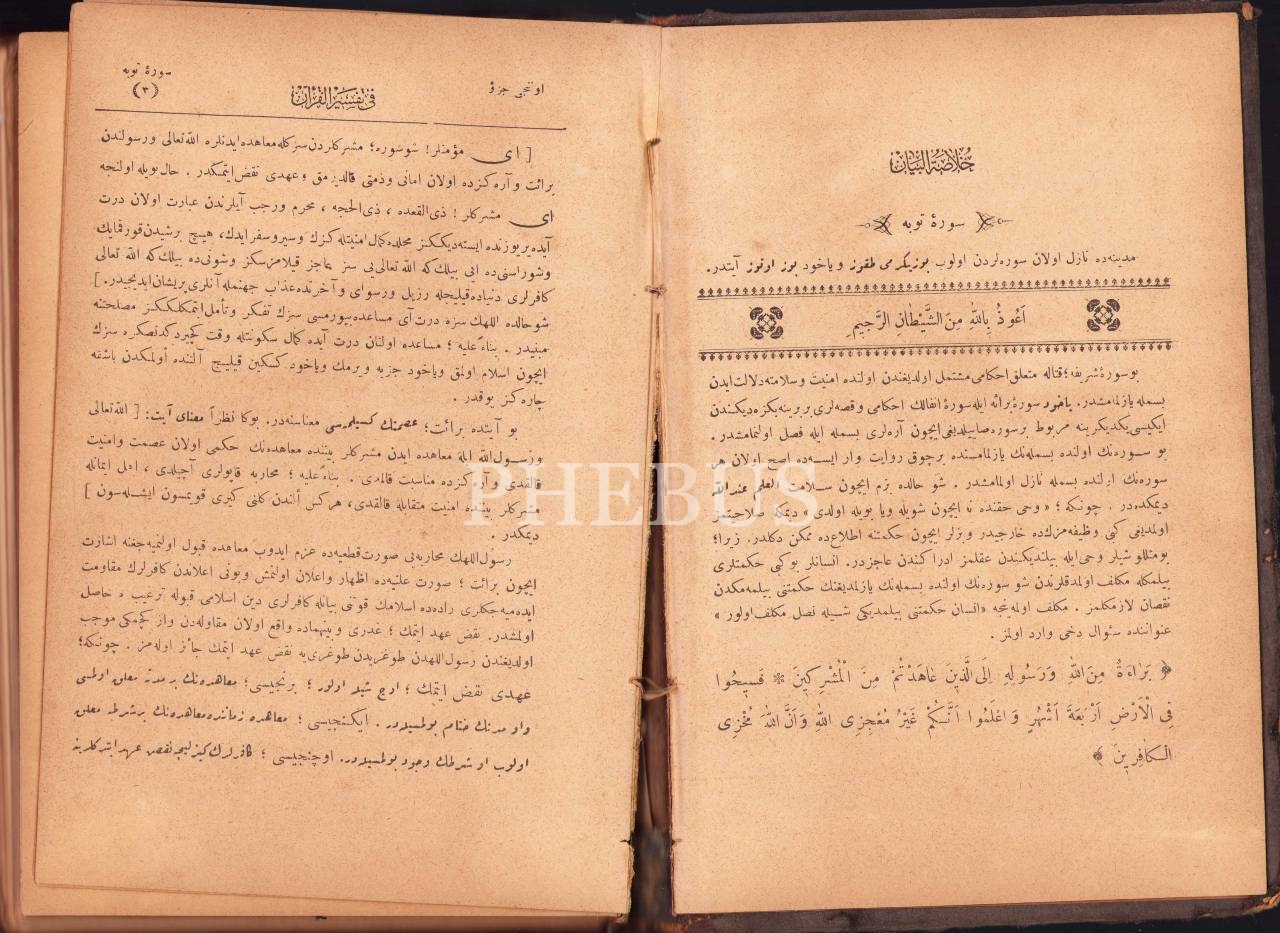 خلاصة البيان
سورۀ توبه
مدینه‌ده نازل اولان سوره‌لردن اولوب یوزیکرمی طقوز ویاخود یوز اوتوز آیتدر.
اَعُوذُ بِاللّٰهِ مِنَ الشَّيْطَانِ الرَّجِيمِ
بوسورۀ شریفه؛ قتاله متعلق احکامی مشتمل اولدیغندن اولنده امنیت وسلامته دلالت ایدن
بسمله یازلمامشدر. یاخود سورۀ برائه ایله سورۀ انفالك احکامی وقصه‌لری بربرینه بکزه‌دیکندن
ایکیسی یکدیکرینه مربوط برسوره صاییلدیغی ایچون آره‌لری بسمله ایله فصل اولنمامشدر.
بو سوره‌نك اولنده بسمله‌نك یازلمامسنده برچوق روایت وار ایسه‌ده اصح اولان هر
سوره‌نك اولنده بسمله نازل اولمامشدر. شو حالده بزم ایچون سلامت العلم عند الله
دیمکده‌در. چونکه؛ «وحی حقنده نه ایچون شویله ویا بویله اولدی» دیمکه صلاحیتمز
اولمدیغی کبی وظیفه‌مزك‌ده خارجیدر وبزلر ایچون حکمتنه اطلاع‌ده ممکن دکلدر. زیرا؛
بومثللو شیلر وحی ایله بیلندیکندن عقلمز ادراکندن عاجزدر. انسانلر بوکبی حکمتلری
بیلمکله مکلف اولمدقلرندن شو سوره‌نك اولنده بسمله‌نك یازلمدیغنك حکمتنی بیلمه‌مکدن
نقصان لازمکلمز. مکلف اولمه‌ینجه «انسان حکمتنی بیلمدیکی شیله نصل مکلف اولور»
عنواننده سئوال دخی وارد اولمز.
﴿ بَرَاءَةٌ مِنَ اللّٰهِ وَرَسُولِهِ اِلَى الَّذِينَ عَاهَدْتُمْ مِنَ الْمُشْرِكِينَ * فَسِيحُوا
فِى الْاَرْضِ اَرْبَعَةَ اَشْهُرٍ وَاعْلَمُوا اَنَّكُمْ غَيْرُ مُعْجِزِى اللّٰهِ وَاَنَّ اللّٰهَ مُخْزِى
الْكَافِرِينَ ﴾
اوننجی جزؤ
فى تفسير القرآن
سورۀ توبه
(٣)
[ ای مؤمنلر! شوسوره؛ مشرکلردن سزکله معاهده ایدنلره الله تعالی ورسولندن
برائت وآره‌کزده اولان امانی وذمتی قالدیرمق وعهدی نقض ایتمکدر. حال بویله اولنجه
ای مشرکلر! ذی القعده، ذی الحجه، محرم ورجب آیلرندن عبارت اولان درت
آیده یریوزنده ایسته‌دیککز محلده کمال امنیتله کزك وسیروسفر ایدك، هیچ برشیدن قورقمایك
وشوراسنی‌ده ایی بیلك که الله تعالی‌یی سز عاجز قیلامزسکز وشونی‌ده بیلك که الله تعالی
کافرلری دنیاده قیلیجله رزیل ورسوای وآخرتده عذاب جهنمله آنلری پریشان ایدیجیدر.]
شوحالده اللهك سزه درت آی مساعده بیورمسی سزك تفکر وتأمل ایتمکلککز مصلحتنه
مبنیدر. بناءً علیه؛ مساعده اولنان درت آیده کمال سکونتله وقت کچیردکدنصکره سزك
ایچون اسلام اولمق ویاخود جزیه ویرمك ویاخود کسکین قیلیج آلتنده اولمکدن باشقه
چاره‌کز یوقدر.
بو آیتده برائت؛ عصمتك کسیلمسی معناسنه‌در. بوکا نظراً معنای آیت: [ الله تعالی
ورسول الله ایله معاهده ایدن مشرکلر بیننده معاهده‌نك حکمی اولان عصمت وامنیت
قالقدی وآره‌کزده مناسبت قالمدی. بناءً علیه؛ محاربه قاپولری آچیلدی، اهل ایمانله
مشرکلر بیننده امنیت متقابله قالقدی، هرکس الندن کلنی کیری قویمسون ایشله‌سون ]
دیمکدر.
رسول اللهك محاربه‌یی صورت قطعیه‌ده عزم ایدوب معاهده قبول اولنمیه‌جغنه اشارت
ایچون برائت؛ صورت علنیه‌ده اظهار واعلان اولنمش وبونی اعلاندن کافرلرك مقاومت
ایده‌میه‌جکلری راده‌ده اسلامك قوتنی بیانله کافرلری دین اسلامی قبوله ترغیب ده حاصل
اولمشدر. نقض عهد ایتمك؛ غدری وبینهماده واقع اولان مقاوله‌دن واز کچمکی موجب
اولدیغندن رسول اللهدن طوغریدن طوغری‌یه نقض عهد ایتمك جائز اوله‌مز. چونکه؛
عهدی نقض ایتمك؛ اوچ شیله اولور؛ برنجیسی؛ معاهده‌نك بر مدته معلق اولمسی
واو مدتك ختام بولمسیدر. ایکنجیسی؛ معاهده زماننده معاهده‌نك برشرطه معلق
اولوب او شرطك وجود بولمسیدر. اوچنجیسی؛ کافرلرك کیزلیجه نقض عهد ایتدکلرینه
PHEBUS